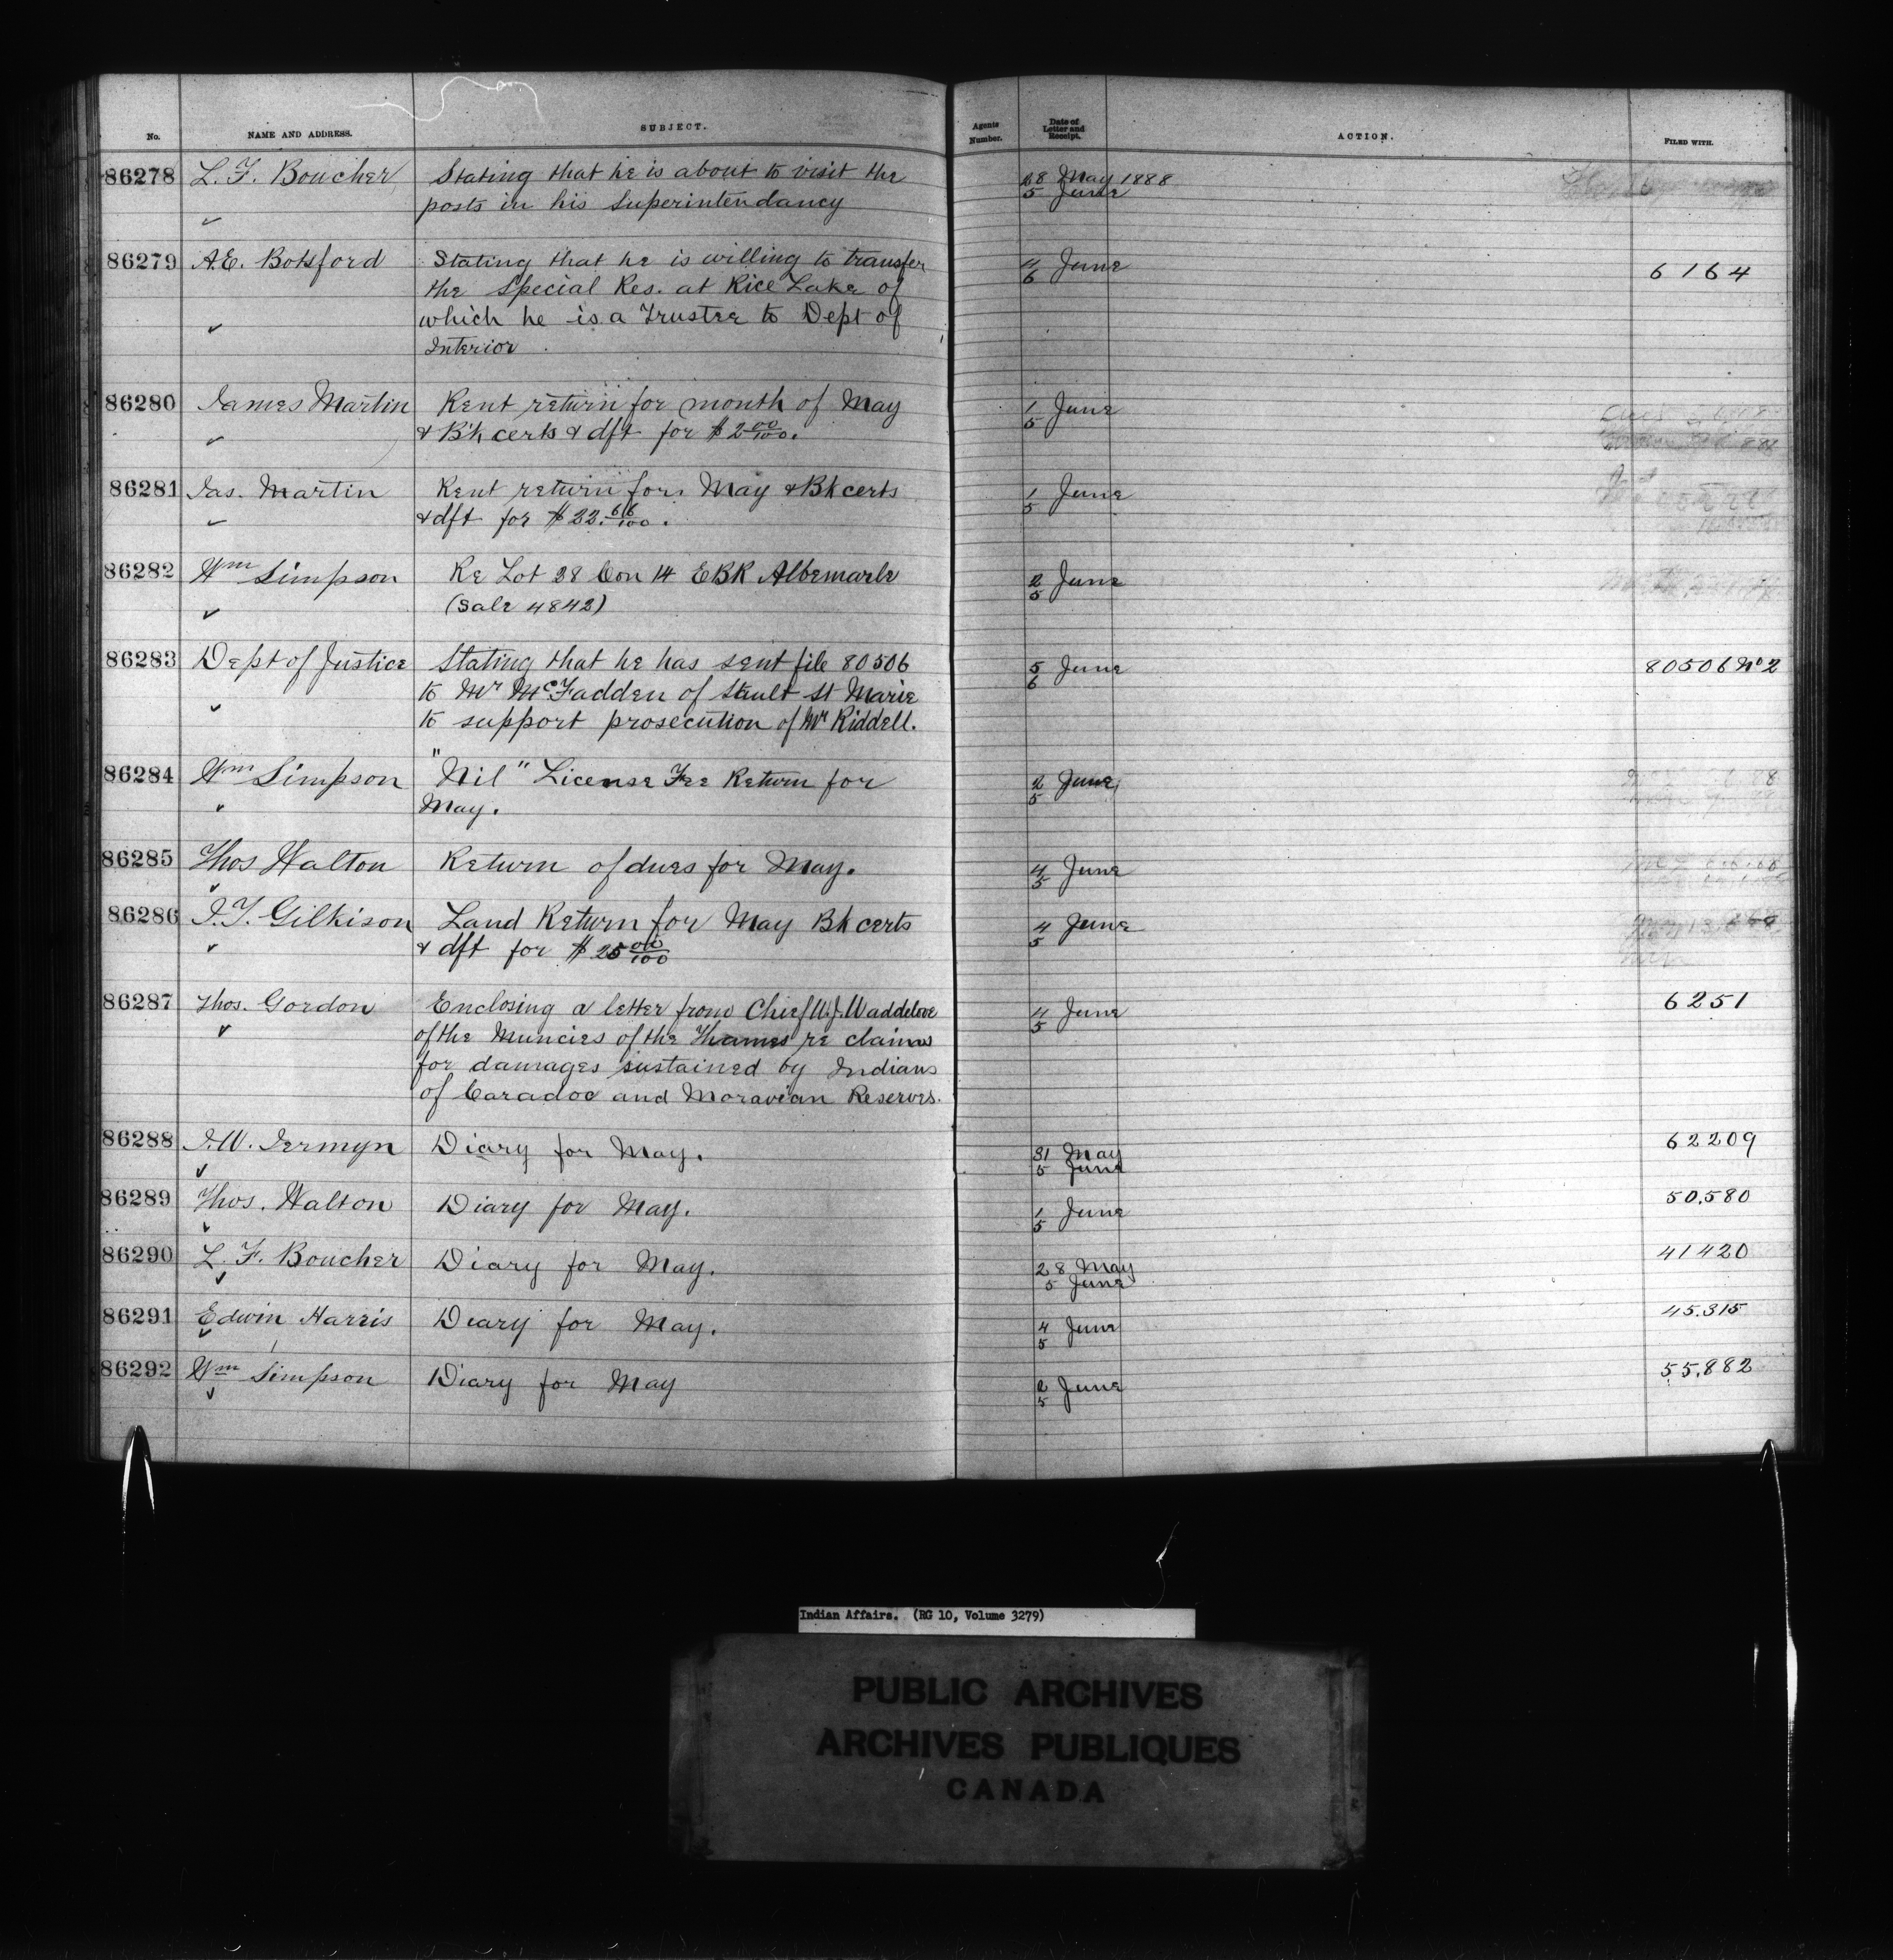 No. NAME AND ADDRESS. SUBJECT. Agents Number. Date of Letter and Receipt. ACTION. FILED WITH.
86278 L. F. Boucher Stating that he is about to visit the 28 May 1888
posts in his Superintendancy 5 June
86279 A.E. Botsford Stating that he is willing to transfer 4 June 6164
the Special Res. at Rice Lake of 6
which he is a Trustee to Dept of
Interior
86280 James Martin Rent return for month of May 1 June
& B'k certs & dft for $2 00/100. 5
86281 Jas. Martin Rent return for May & Bk certs 1 June
& dft for $22. 68/100. 5
86282 Wm Simpson Re Lot 28 Con 14 EBR Albemarle 2 June
(Sale 4842) 5
86283 Dept of Justice Stating that he has sent file 80506 5 June 80506 No 2
to Mr McFadden of Sault St Marie 6
to support prosecution of Mr Riddell.
86284 Wm Simpson "Nil" License Fee Return for 2 June
May. 5
86285 Thos Walton Return of dues for May. 4 June
5
86286 J.T. Gilkison Land Return for May Bk certs 4 June
& dft for $25 00/100 5
86287 Thos. Gordon Enclosing a letter from Chief W.J. Waddelove 4 June 6251
of the Muncies of the Thames re claims 5
for damages sustained by Indians
of Caradoc and Moravian Reserves.
86288 J.W. Jermyn Diary for May. 31 May 62209
5 June
86289 Thos. Walton Diary for May. 1 June 50.580
5
86290 L. F. Boucher Diary for May. 28 May 41420
5 June
86291 Edwin Harris Diary for May. 4 June 45.315
5
86292 Wm Simpson Diary for May 2 June 55.882
5
Indian Affairs. (RG 10, Volume 3279)
PUBLIC ARCHIVES
ARCHIVES PUBLIQUES
CANADA